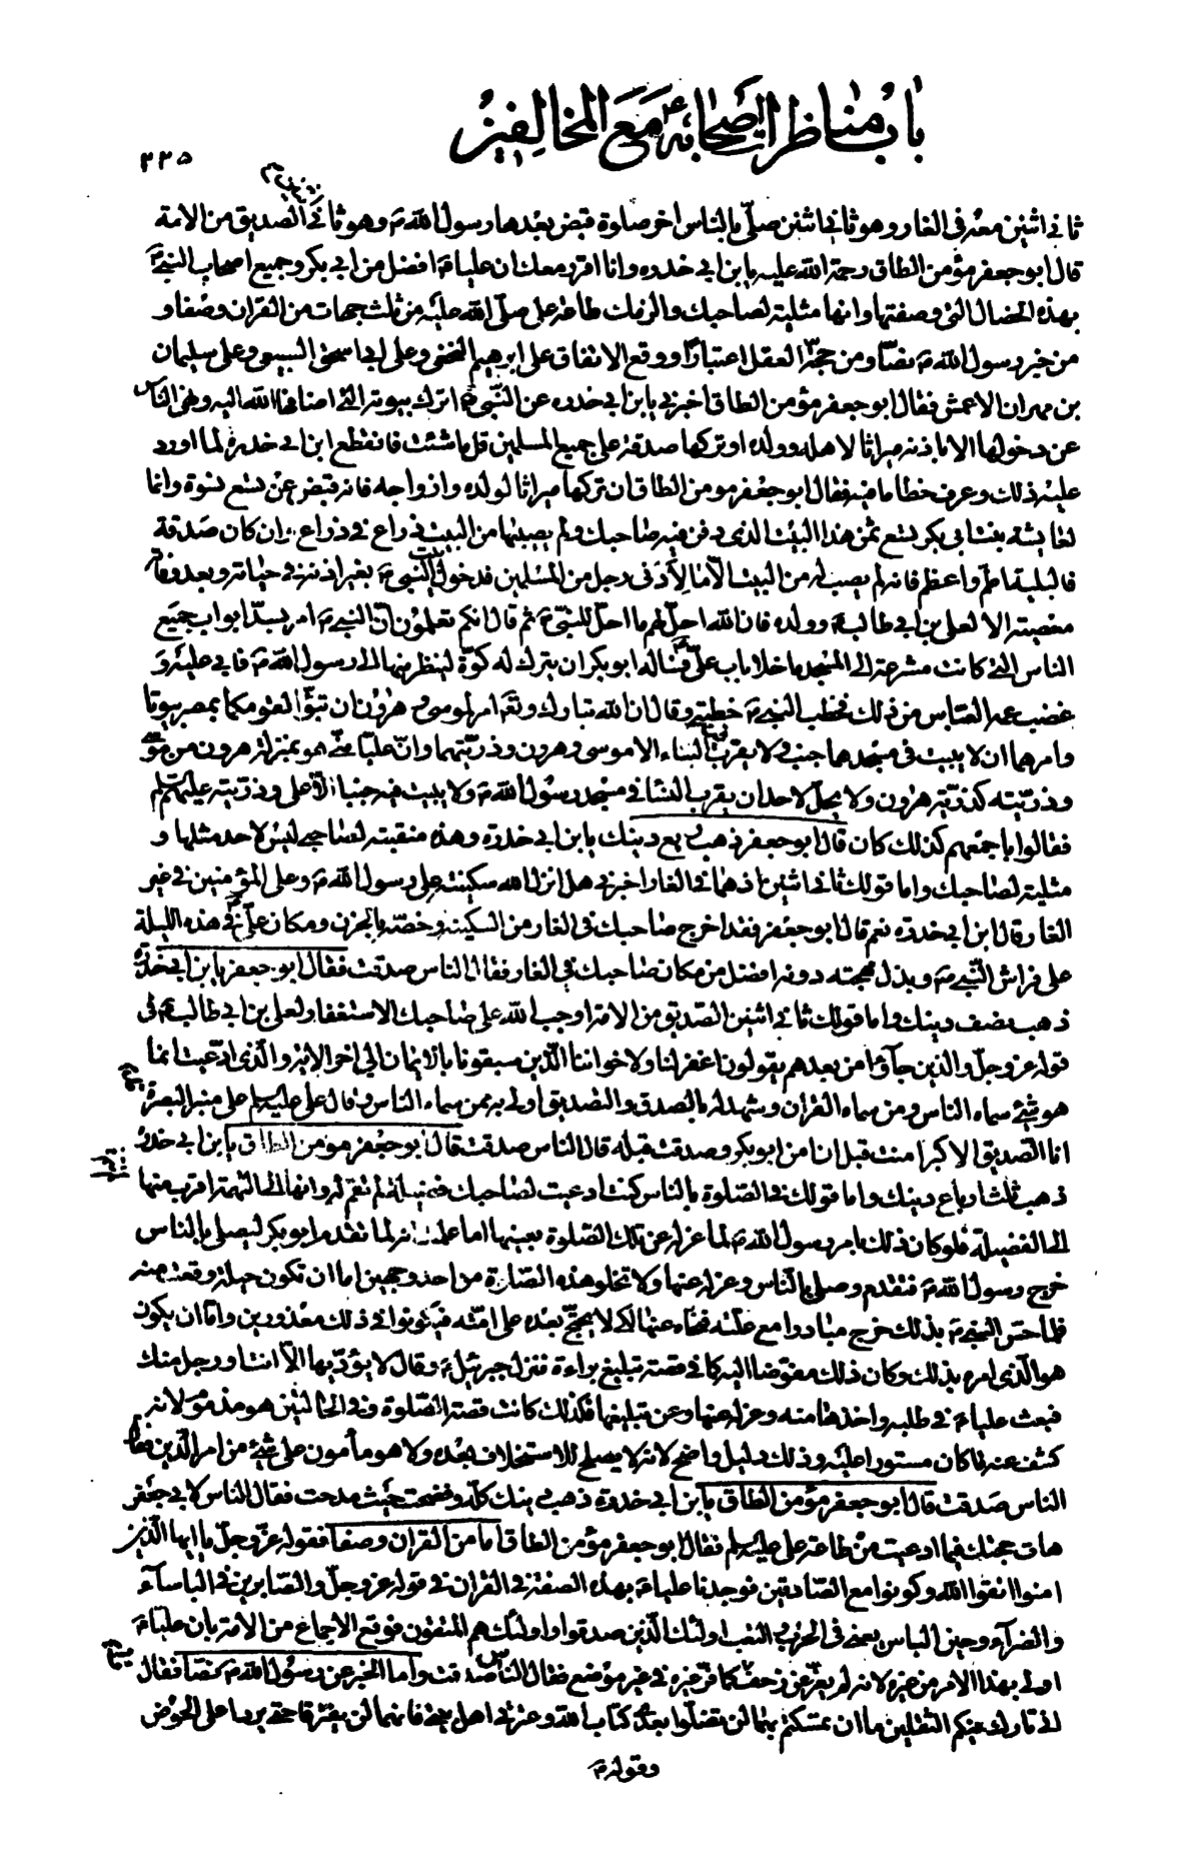 باب مناظرات اصحابه ع مع المخالفين
٢٢٥
ثاني اثنين معه في الغار وهو ثاني اثنين صلى بالناس اخر صلوة قبض بعدها رسول الله ص وهو ثاني الصديق من الامة
قال ابو جعفر مؤمن الطاق رحمة الله عليه يا بن ابي خدره وانا اقرر معك ان عليا ع افضل من ابي بكر وجميع اصحاب النبي ص
بهذه الخصال التي وصفتها وانها مثلبة لصاحبك والزمك طاعة علي صلى الله عليه من ثلث جهات من القران وصفا و
من خبر رسول الله ص نصا ومن حجة العقل اعتبارا ووقع الاتفاق على ابرهيم النخعي وعلى ابي اسحق السبيعي وعلى سليمان
بن مهران الاعمش فقال ابو جعفر مؤمن الطاق اخبرني يا بن ابي خدره عن النبي ص اترك بيوته التي اضافها الله اليه ونهى الناس
عن دخولها الا باذنه ميراثا لاهله وولده او تركها صدقة على جميع المسلمين قل ما شئت فانقطع ابن ابي خدرة لما اورد
عليه ذلك وعرف خطا ما فيه فقال ابو جعفر مومن الطاق ان تركها ميراثا لولده وازواجه فانه قبض عن تسع نسوة وانما
لعايشة بنت ابي بكر تسع ثمن هذا البيت الذي دفن فيه صاحبك ولم يصبها من البيت ذراع في ذراع وان كان صدقة
فالبلية اطم واعظم فانه لم يصب له من البيت الا ما لادنى رجل من المسلمين فدخول بيت النبي ص بغير اذنه في حياته وبعد وفاته
معصية الا لعلي بن ابي طالب ع وولده فان الله احل لهم ما احل للنبي ص ثم قال انكم تعلمون ان النبي ص امر بسد ابواب جميع
الناس التي كانت مشرعة الى المسجد ما خلا باب علي ع فساله ابو بكر ان يترك له كوة لينظر منها الى رسول الله ص فابى عليه و
غضب عمه العباس من ذلك فخطب النبي ص خطبة وقال ان الله تبارك وتعم امر لموسى وهرون ان تبوءا لقومكما بمصر بيوتا
وامرهما ان لا يبيت في مسجدهما جنب ولا يقرب فيه النساء الا موسى وهرون وذريتهما وان عليا مني هو بمنزلة هرون من موسى
وذريته كذرية هرون ولا يحل لاحد ان يقرب النساء في مسجد رسول الله ص ولا يبيت فيه جنبا الا علي وذريته عليهم السلم
فقالوا باجمعهم كذلك كان قال ابو جعفر ذهب ربع دينك يا بن ابي خدرة وهذه منقبة لصاحبي ليس لاحد مثلها و
مثلبة لصاحبك واما قولك ثاني اثنين اذ هما في الغار اخبرني هل انزل الله سكينته على رسول الله ص وعلى المؤمنين في غير
الغار قال ابن ابي خدرة نعم قال ابو جعفر فقد اخرج صاحبك في الغار من السكينة وخصه بالحزن ومكان علي ع في هذه الليلة
على فراش النبي ص وبذل مهجته دونه افضل من مكان صاحبك في الغار فقال الناس صدقت فقال ابو جعفر يا بن ابي خدرة
ذهب نصف دينك واما قولك ثاني اثنين الصديق من الامة اوجب الله على صاحبك الاستغفار لعلي بن ابي طالب ع في
قوله عز وجل والذين جاؤا من بعدهم يقولون اغفر لنا ولاخواننا الذين سبقونا بالايمان الى اخر الاية والذي ادعيت انما
هو شئ سماه الناس ومن سماه القران وشهد له بالصدق والتصديق اولى به ممن سماه الناس وقال علي عليه السلم على منبر البصرة
انا الصديق الاكبر امنت قبل ان امن ابو بكر وصدقت قبله قال الناس صدقت قال ابو جعفر مؤمن الطاق يا بن ابي خدرة
ذهب ثلثة ارباع دينك واما قولك في الصلوة بالناس كنت ادعيت لصاحبك فضيلة لم تقم له وانها الى التهمة اقرب منها
الى الفضيلة فلو كان ذلك بامر رسول الله ص لما عزله عن تلك الصلوة بعينها اما علمت انه لما تقدم ابو بكر ليصلي بالناس
خرج رسول الله ص فتقدم وصلى بالناس وعزله عنها ولا تخلو هذه الصلوة من احد وجهين اما ان تكون حيلة وقعت منه
فلما حس النبي ص بذلك خرج مبادرا مع علته فنحاه عنها لكي لا يحتج بعده على امته فيكونوا في ذلك معذورين واما ان يكون
هو الذي امره بذلك وكان ذلك مفوضا اليه كما في قصة تبليغ براءة فنزل جبرئيل ع وقال لا يؤديها الا انت او رجل منك
فبعث عليا ع في طلبه واخذها منه وعزله عنها وعن تبليغها فكذلك كانت قصة الصلوة وفي الحالتين هو مذموم لانه
كشف عنه ما كان مستورا عليه وذلك دليل واضح لانه لا يصلح للاستخلاف بعده ولا هو مأمون على شئ من امر الدين فقال
الناس صدقت قال ابو جعفر مؤمن الطاق يا بن ابي خدرة ذهب دينك كله وفضحت حيث مدحت فقال الناس لابي جعفر
هات حجتك فيما ادعيت من طاعة علي عليه السلم فقال ابو جعفر مؤمن الطاق اما من القران وصفا فقوله عز وجل يا ايها الذين
امنوا اتقوا الله وكونوا مع الصادقين فوجدنا عليا ع بهذه الصفة في القران في قوله عز وجل والصابرين في الباسآء
والضرآء وحين الباس يعني في الحرب والتعب اولئك الذين صدقوا واولئك هم المتقون فوقع الاجماع من الامة بان عليا ع
اولى بهذا الامر من غيره لانه لم يفر عن زحف كما فر غيره في غير موضع فقال الناس صدقت واما الخبر عن رسول الله ص نصا فقال
اني تارك فيكم الثقلين ما ان تمسكتم بهما لن تضلوا بعدي كتاب الله وعترتي اهل بيتي فانهما لن يفترقا حتى يردا على الحوض
وقوله ص